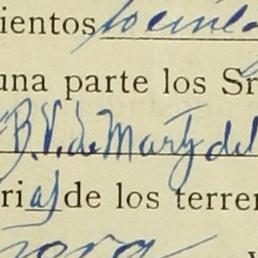 ientos
una parte los Sr
B. V. de Marty del
rias de los terren